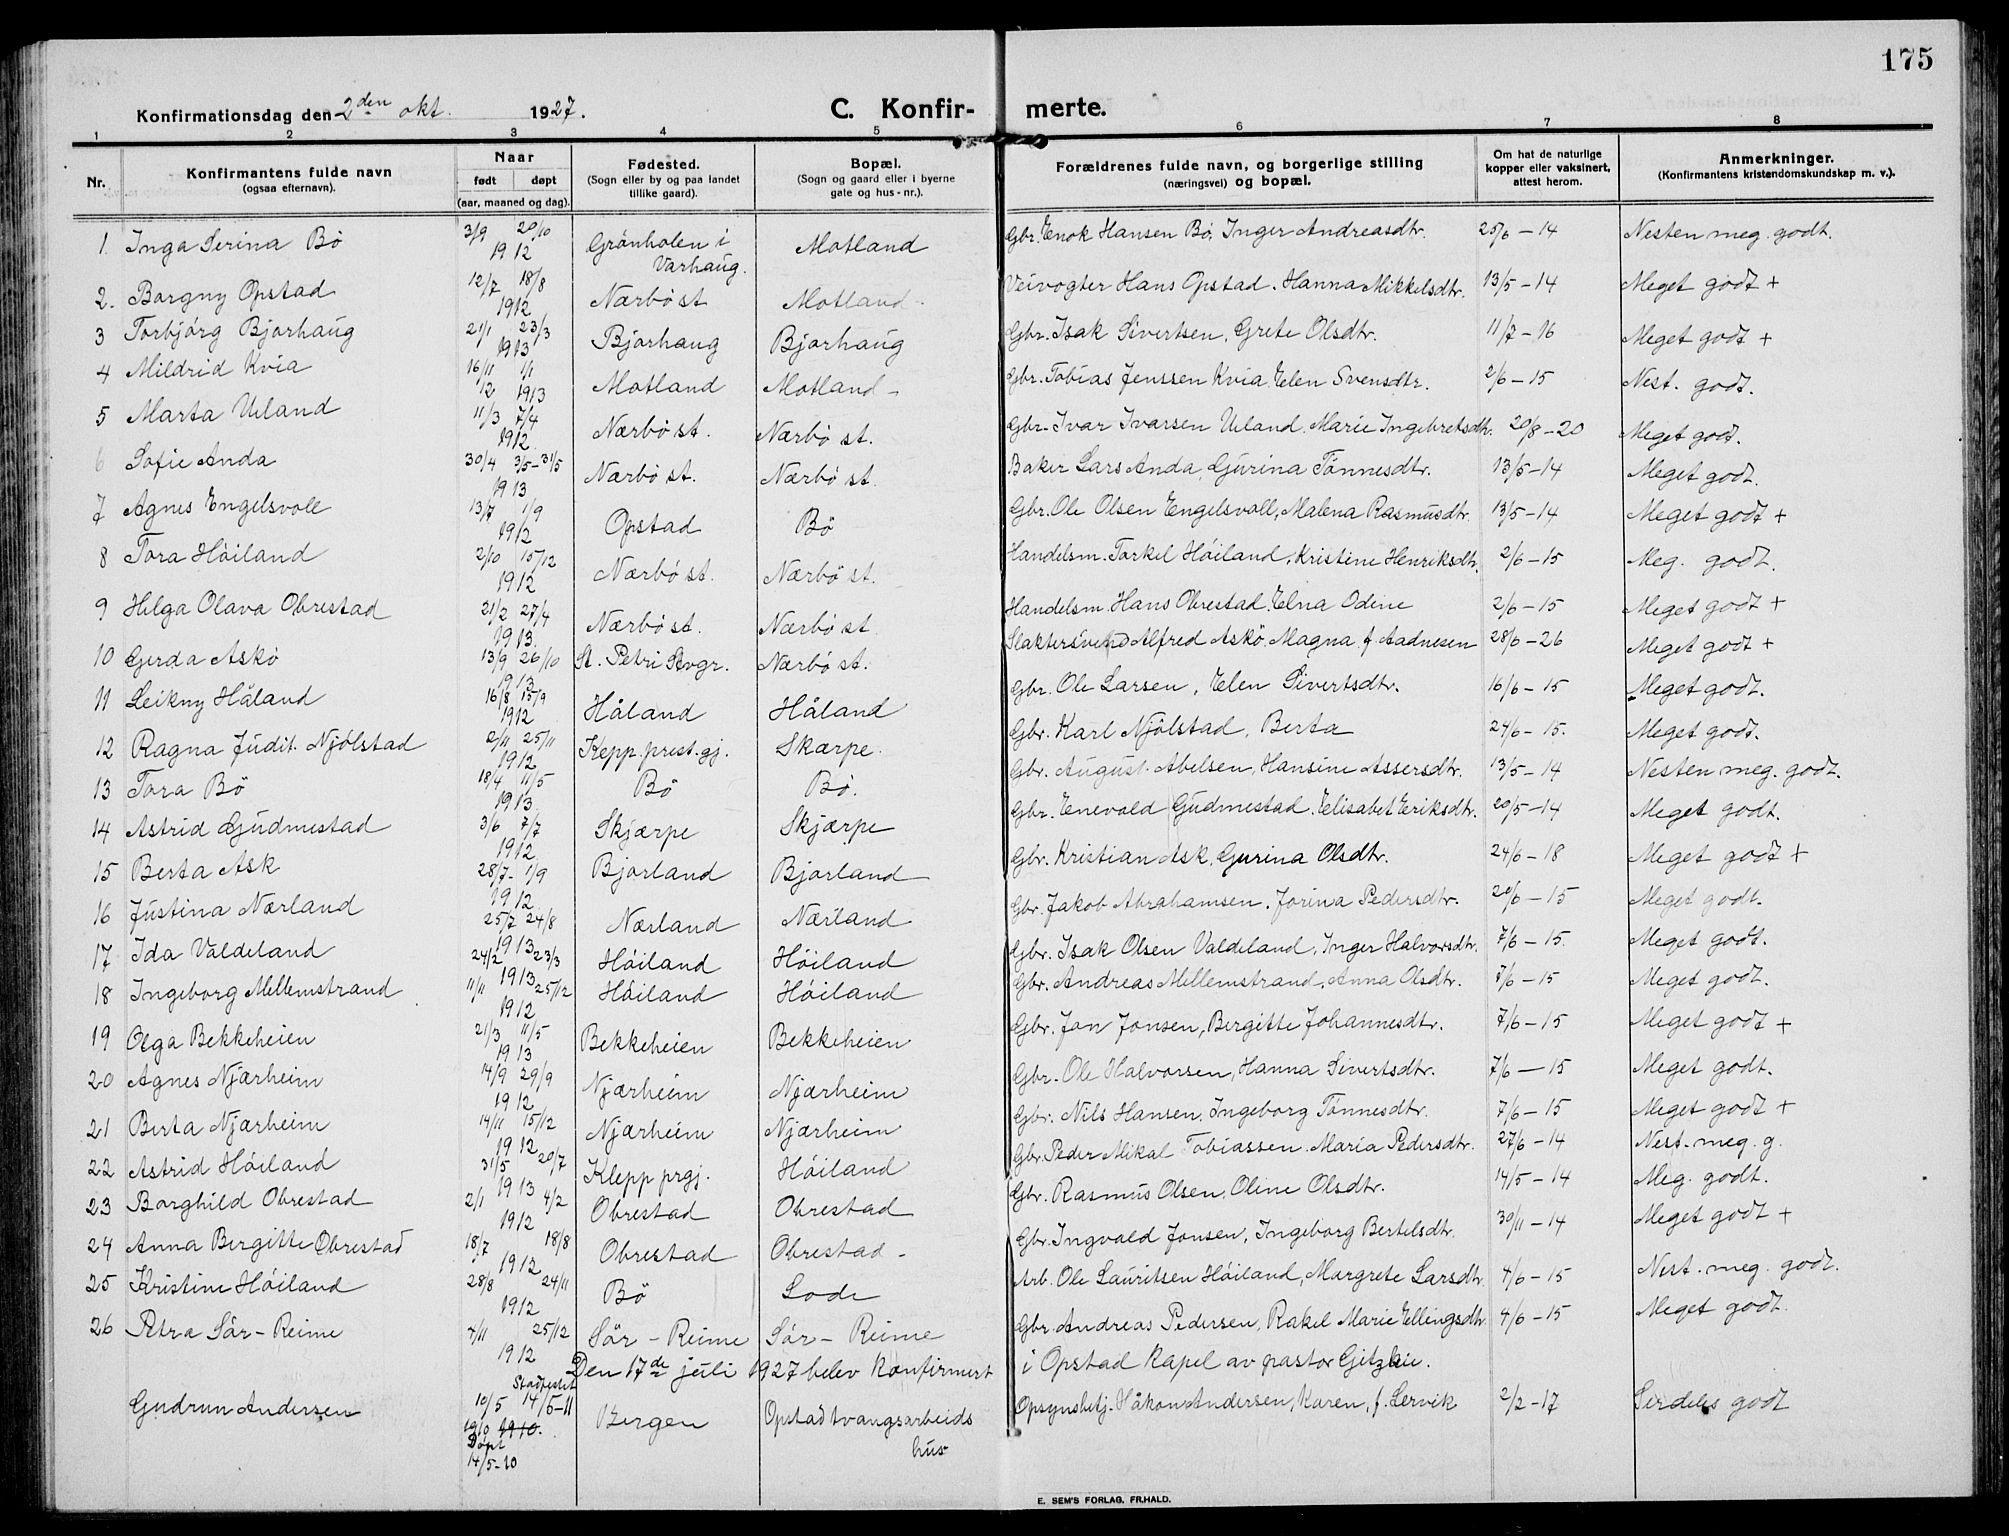 175
Konfirmationsdag den 2den okt. 1927. C. Konfirmerte.
1 2 3 4 5 6 7 8
Nr. Konfirmantens fulde navn (ogsaa efternavn). Naar født døpt (aar, maaned og dag). Fødested. (Sogn eller by og paa landet tillike gaard). Bopæl. (Sogn og gaard eller i byerne gate og hus-nr.). Forældrenes fulde navn, og borgerlige stilling (næringsvei) og bopæl. Om hat de naturlige kopper eller vaksinert, attest herom. Anmerkninger. (Konfirmantens kristendomskundskap m. v.).
1. Inga Serina Bö 3/9 20/10 1912 Grönholen i Varhaug. Motland Gbr. Enok Hansen Bö, Inger Andreasdtr. 25/6 - 14 Nesten meg. godt.
2. Borgny Opstad 12/7 18/8 1912 Nærbö st Motland Veivogter Hans Opstad. Hanna Mikkelsdtr. 13/5 - 14 Meget godt +
3 Torbjörg Bjorhaug 21/1 23/3 1913 Bjorhaug Bjorhaug Gbr. Isak Sivertsen, Grete Olsdtr. 11/7 - 16 Meget godt +
4 Mildrid Kvia 16/11 12 1/1 1913 Motland Motland - Gbr. Tobias Jenssen Kvia. Elen Svensdtr. 2/6 - 15 Nest. godt.
5 Marta Ueland 11/3 7/4 1912 Nærbö st. Nærbö st. Gbr. Ivar Ivarsen Ueland. Marie Ingebretsdtr. 20/8 - 20 Meget godt.
6 Sofie Anda 30/4 3/5 - 31/5 1913 Nærbö st. Nærbö st. Baker Lars Anda, Gurina Tönnesdtr. 13/5 - 14 Meget godt.
7 Agnes Engelsvoll 13/7 1/9 1912 Opstad Bö Gbr. Ole Olsen Engelsvoll, Malena Rasmusdtr. 13/5 - 14 Meget godt +
8 Tora Höiland 2/10 15/12 1912 Nærbö st. Nærbö st. Handelsm. Torkel Höiland, Kristine Henriksdtr. 2/6 - 15 Meg. godt.
9 Helga Olava Obrestad 21/2 27/4 1913 Nærbö st. Nærbö st. Handelsm. Hans Obrestad, Elna Odine 2/6 - 15 Meget godt +
10 Gerda Askö 13/9 26/10 1913 St. Petri Stvgr. Nærbö st. Slaktersvend Alfred Askö, Magna f. Aadnesen 28/6 - 26 Meget godt +
11 Leikny Håland 16/8 15/9 1912 Håland Håland Gbr. Ole Larsen, Elen Sivertsdtr. 16/6 - 15 Meget godt.
12 Ragna Judit Njölstad 2/11 25/11 1912 Kepp. prest. gj. Skærpe. Gbr. Karl Njölstad, Berta 24/6 - 15. Meget godt.
13 Tora Bö 18/4 11/5 1913 Bö Bö. Gbr. August Abelsen, Hansine Assersdtr. 13/5 - 14 Nesten meg. godt.
14 Astrid Gudmestad 3/6 7/7 1912 Skjærpe Skjærpe Gbr. Enevald Gudmestad. Elisabet Eriksdtr. 20/5 - 14 Meget godt.
15 Berta Ask 28/7 - 1/9 1912 Bjorland Bjorland Gbr. Kristian Ask, Gurina Olsdtr. 24/6 - 18 Meget godt +
16 Justina Nærland 25/7 24/8 1913 Nærland Nærland Gbr. Jakob Abrahamsen. Jorina Pedersdtr. 20/6 - 15 Meget godt.
17 Ida Valdeland 24/2 23/3 1913 Höiland Höiland Gbr. Isak Olsen Valdeland, Inger Halvorsdtr. 7/6 - 15. Meget godt.
18 Ingeborg Mellemstrand 11/11 25/12 1912 Höiland Höiland Gbr. Andreas Mellemstrand, Anna Olsdtr. 7/6 - 15 Meget godt.
19 Olga Bekkeheien 21/3 11/5 1913 Bekkeheien Bekkeheien Gbr. Jon Jonsen, Bergitte Johannesdtr. 7/6 - 15 Meget godt +
20 Agnes Njærheim 14/9 29/9 1912 Njærheim Njærheim Gbr. Ole Halvorsen, Hanna Sivertsdtr. 7/6 - 15 Meget godt.
21 Berta Njærheim 14/11 15/12 1912 Njærheim Njærheim Gbr. Nils Hansen. Ingeborg Tönnesdtr. 7/6 - 15 Meget godt +
22 Astrid Höiland 31/5 20/7 1913 Klepp prgj. Höiland Gbr. Peder Mikal Tobiassen. Maria Pedersdtr. 27/6 - 14 Nest. meg. g.
23 Borghild Obrestad 2/1 4/2 1912 Obrestad Obrestad Gbr. Rasmus Olsen, Oline Olsdtr. 14/5 - 14 Meg. godt.
24 Anna Bergitte Obrestad 18/7 18/8 1912 Obrestad Obrestad - Gbr. Ingvald Jonsen, Ingeborg Bertelsdtr. 30/11 - 14 Meget godt +
25 Kristine Höiland 28/8 24/11 1912 Bö Lode Arb. Ole Lauritsen Höiland, Margrete Larsdtr. 4/6 - 15 Nest. meg. godt.
26 Petra Sör-Reime 4/11 25/12 1912 Sör-Reime Sör-Reime Gbr. Andreas Pedersen, Rakel Marie Ellingsdtr. 4/6 - 15 Meget godt
Den 17de juli 1927 belev konfirmert i Opstad kapel av pastor
Gudrun Andersen 10/5 1910 Stadfestet 14/5-11 1910. Döpt 14/5-10 Bergen Opstad tvangsarbeidshus Opsynsbetj. Håkon Andersen, Karen, f. Lervik 2/2 - 17 Serdeles godt
E. SEM'S FORLAG, FR.HALD.